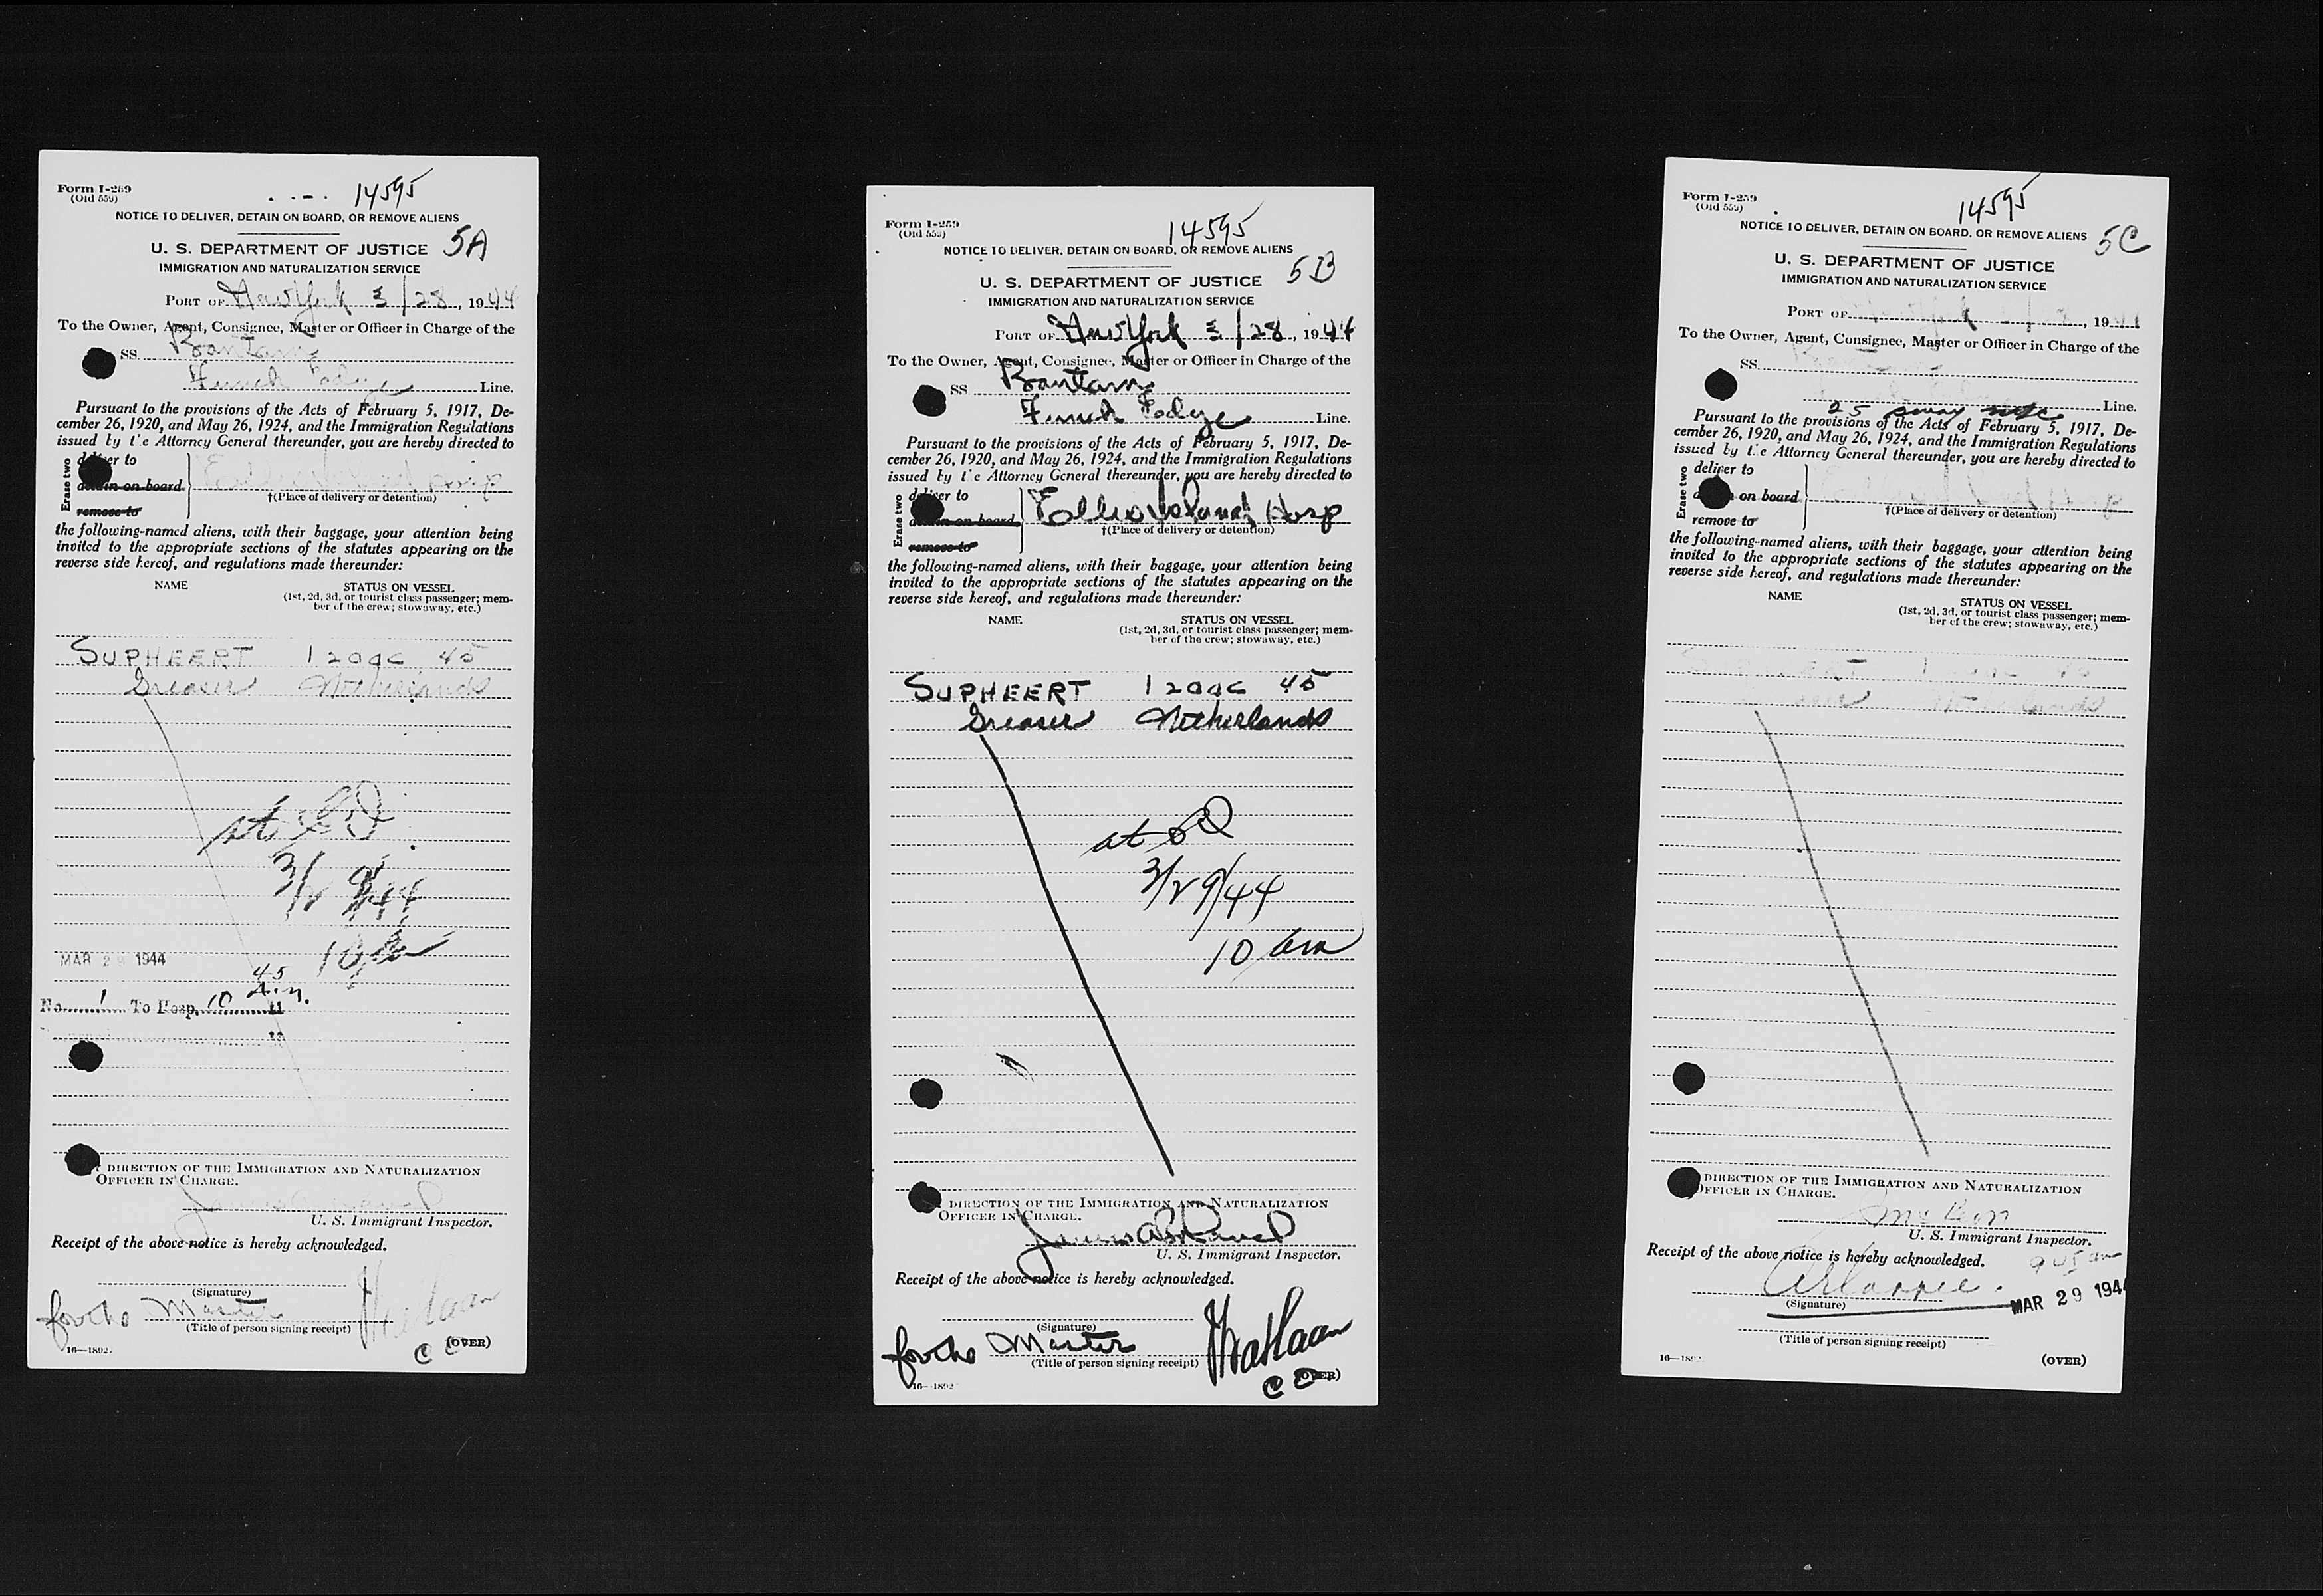 Form I-259
(Old 559)
14595
NOTICE TO DELIVER, DETAIN ON BOARD, OR REMOVE ALIENS
5A
U. S. DEPARTMENT OF JUSTICE
IMMIGRATION AND NATURALIZATION SERVICE
PORT OF New York 3/28, 1944
To the Owner, Agent, Consignee, Master or Officer in Charge of the
SS Bantam
Funch Edye Line.
Pursuant to the provisions of the Acts of February 5, 1917, De-
cember 26, 1920, and May 26, 1924, and the Immigration Regulations
issued by the Attorney General thereunder, you are hereby directed to
Erase two
deliver to
detain on board
remove to
Ellis Island Hosp
†(Place of delivery or detention)
the following-named aliens, with their baggage, your attention being
invited to the appropriate sections of the statutes appearing on the
reverse side hereof, and regulations made thereunder:
NAME STATUS ON VESSEL
(1st, 2d, 3d, or tourist class passenger; mem-
ber of the crew; stowaway, etc.)
SUPHEERT Izaac 45
Greaser Netherlands
at
3/29/44
10 am
MAR 2 1944
45
No. 1 To Hosp. 10 A.M.
DIRECTION OF THE IMMIGRATION AND NATURALIZATION
OFFICER IN CHARGE.
James
U. S. Immigrant Inspector.
Receipt of the above notice is hereby acknowledged.
(Signature)
for the Master
(Title of person signing receipt)
(OVER)
16—1892
Form I-259
(Old 559)
14595
NOTICE TO DELIVER, DETAIN ON BOARD, OR REMOVE ALIENS
5B
U. S. DEPARTMENT OF JUSTICE
IMMIGRATION AND NATURALIZATION SERVICE
PORT OF New York 3/28, 1944
To the Owner, Agent, Consignee, Master or Officer in Charge of the
SS Bantam
Funch Edye Line.
Pursuant to the provisions of the Acts of February 5, 1917, De-
cember 26, 1920, and May 26, 1924, and the Immigration Regulations
issued by the Attorney General thereunder, you are hereby directed to
Erase two
deliver to
detain on board
remove to
Ellis Island Hosp
†(Place of delivery or detention)
the following-named aliens, with their baggage, your attention being
invited to the appropriate sections of the statutes appearing on the
reverse side hereof, and regulations made thereunder:
NAME STATUS ON VESSEL
(1st, 2d, 3d, or tourist class passenger; mem-
ber of the crew; stowaway, etc.)
SUPHEERT Izaac 45
Greaser Netherlands
at
3/29/44
10 am
DIRECTION OF THE IMMIGRATION AND NATURALIZATION
OFFICER IN CHARGE.
James
U. S. Immigrant Inspector.
Receipt of the above notice is hereby acknowledged.
(Signature)
for the Master
(Title of person signing receipt)
(OVER)
16—1892
Form I-259
(Old 559)
14595
NOTICE TO DELIVER, DETAIN ON BOARD, OR REMOVE ALIENS
5C
U. S. DEPARTMENT OF JUSTICE
IMMIGRATION AND NATURALIZATION SERVICE
PORT OF New York, 19
To the Owner, Agent, Consignee, Master or Officer in Charge of the
SS
Line.
25
Pursuant to the provisions of the Acts of February 5, 1917, De-
cember 26, 1920, and May 26, 1924, and the Immigration Regulations
issued by the Attorney General thereunder, you are hereby directed to
Erase two
deliver to
detain on board
remove to
†(Place of delivery or detention)
the following-named aliens, with their baggage, your attention being
invited to the appropriate sections of the statutes appearing on the
reverse side hereof, and regulations made thereunder:
NAME STATUS ON VESSEL
(1st, 2d, 3d, or tourist class passenger; mem-
ber of the crew; stowaway, etc.)
SUPHEERT Izaac 45
Greaser Netherlands
DIRECTION OF THE IMMIGRATION AND NATURALIZATION
OFFICER IN CHARGE.
U. S. Immigrant Inspector.
Receipt of the above notice is hereby acknowledged.
9 45 am
(Signature)
MAR 29 1944
(Title of person signing receipt)
16—1892
(OVER)